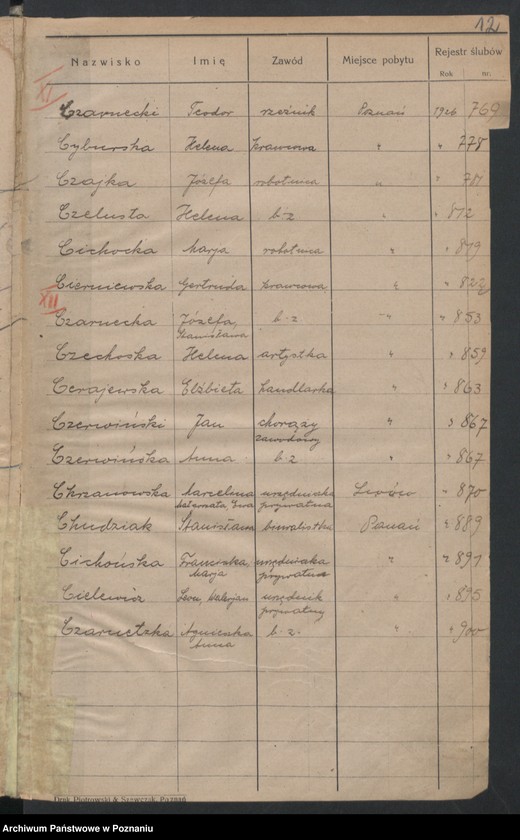 12
Nazwisko Imię Zawód Miejsce pobytu Rejestr ślubów
Rok nr.
XI
Czarnecki Teodor rzeźnik Poznań 1926 769
Cyburska Helena krawcowa " " 778
Czajka Józefa robotnica " " 781
Czelusta Helena b-z " " 812
Cichocka Marja robotnica " " 819
Cierniewska Gertruda krawcowa " " 822
XII
Czarnecka Józefa b-z " " 853
Stanisława
Czechoska Helena artystka " " 859
Cerajewska Elżbieta handlarka " " 863
Czerwiński Jan chorąży " " 867
zawodowy
Czerwińska Anna b z " " 867
Chrzanowska Marcelena urzędniaka Lwów " 870
Ewa prywatna
Chudziak Stanisława biuralistka Poznań " 889
Cichońska Franciszka, urzędniaka " " 891
Marja prywatna
Cielewicz Leon, Walerjan urzędnik " " 895
prywatny
Czarnetzka Agnieszka b. z. " " 900
Anna
Druk. Piotrowski & Szewczak, Poznań
Archiwum Państwowe w Poznaniu